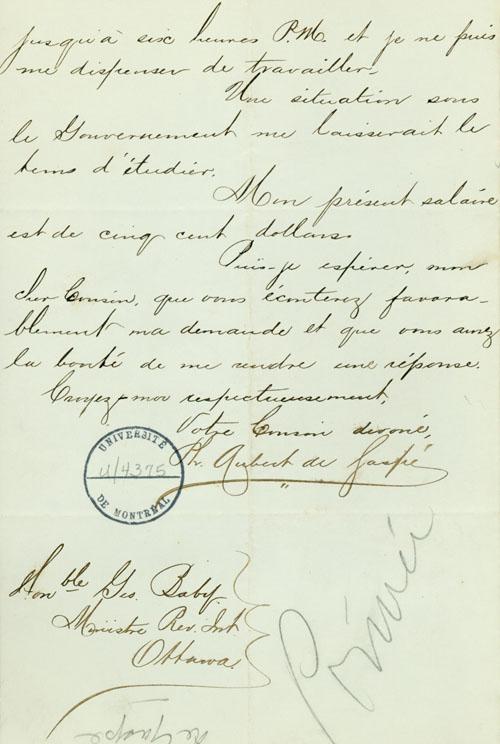 jusqu'à six heures P.M. et je ne puis
me dispenser de travailler.
Une situation sous
le Gouvernement me laisserait le
tems d'étudier.
Mon présent salaire
est de cinq cent dollars.
Puis-je espérer, mon
cher Cousin, que vous écouterez favora-
blement ma demande et que vous aurez
la bonté de me rendre une réponse.
Croyez-moi respectueusement,
Votre Cousin dévoué,
Ph. Aubert de Gaspé
UNIVERSITÉ
U/4375
DE MONTRÉAL
Honble Geo. Baby
Ministre Rev. Int.
Ottawa
de Gaspé